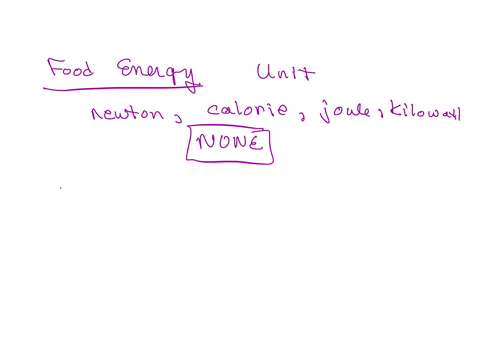 Food Energy Unit
newton, calorie, joule, kilowatt
NONE